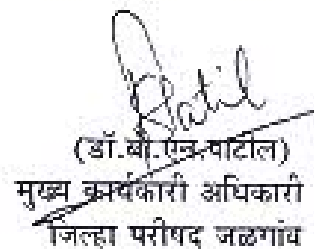 Patil
(डॉ.बी.एन.पाटील)
मुख्य कार्यकारी अधिकारी
जिल्हा परीषद जळगांव